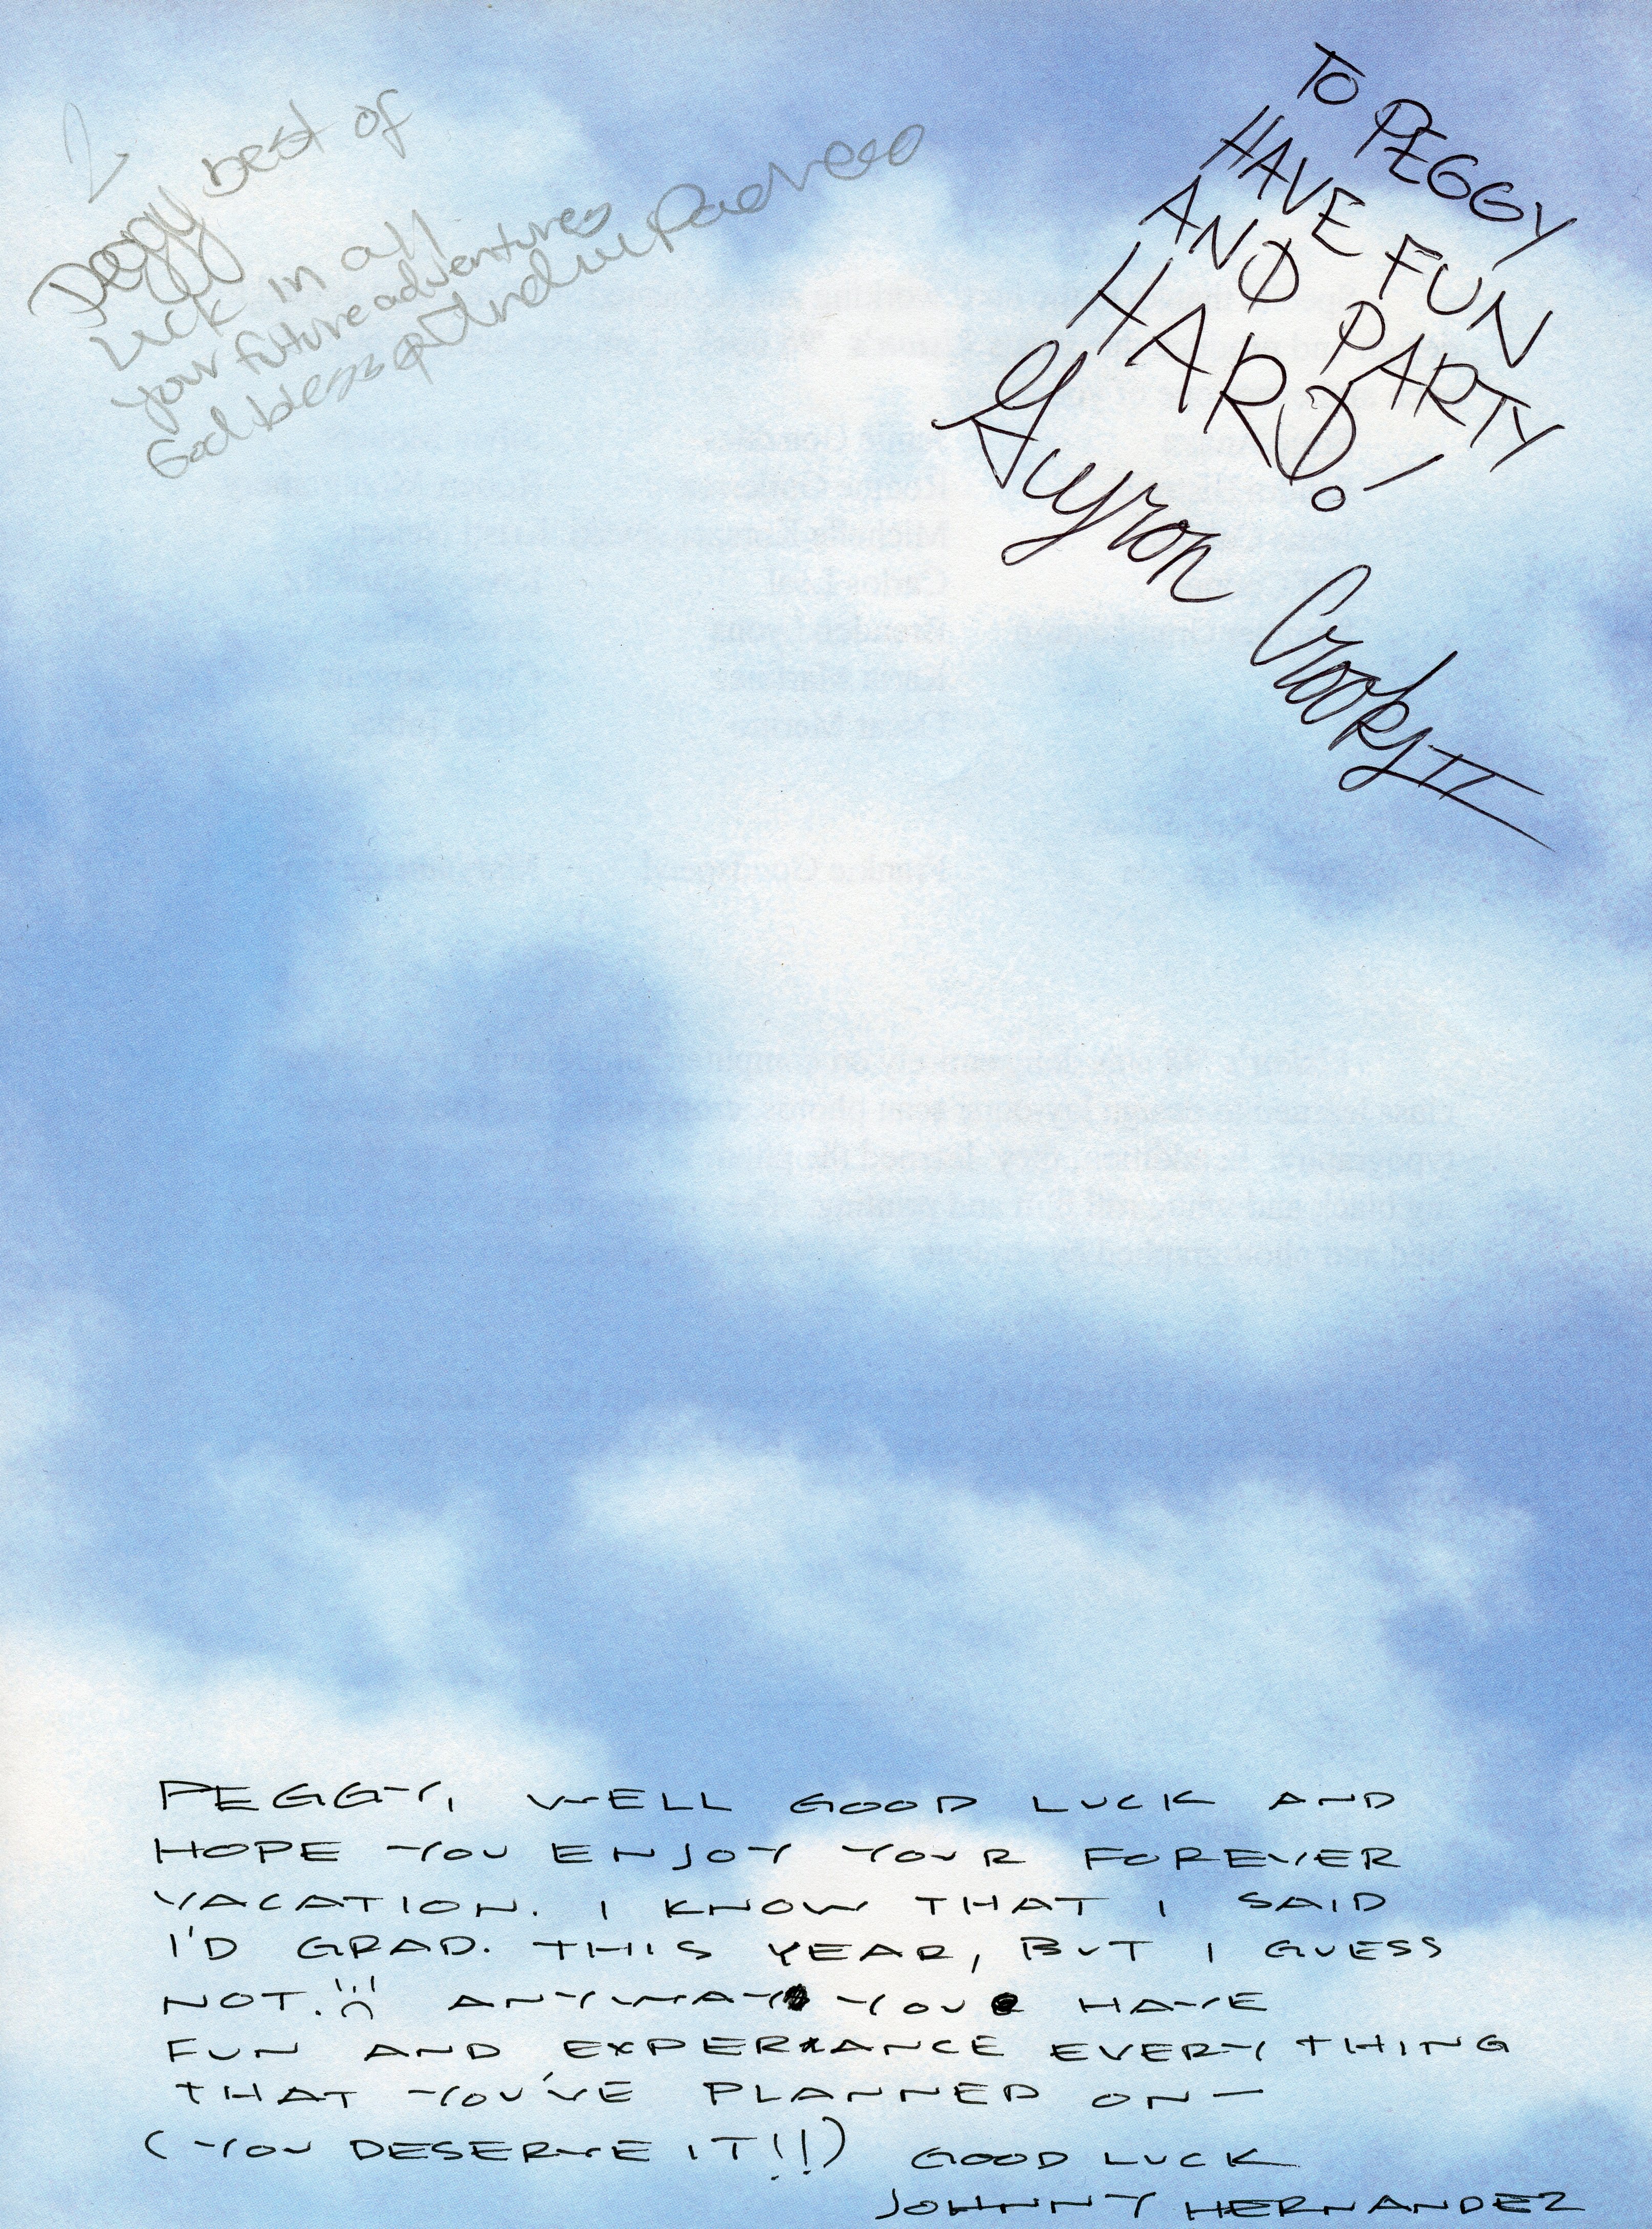 Peggy best of
luck in all
your future adventures
God bless
TO PEGGY
HAVE FUN
AND PARTY
HARD!
Gyron Crooks II
PEGGY, WELL GOOD LUCK AND
HOPE YOU ENJOY YOUR FOREVER
VACATION. I KNOW THAT I SAID
I'D GRAD. THIS YEAR, BUT I GUESS
NOT. ANYWAY YOU HAVE
FUN AND EXPERIANCE EVERYTHING
THAT YOU'VE PLANNED ON—
(YOU DESERVE IT!!) GOOD LUCK
JOHNNY HERNANDEZ